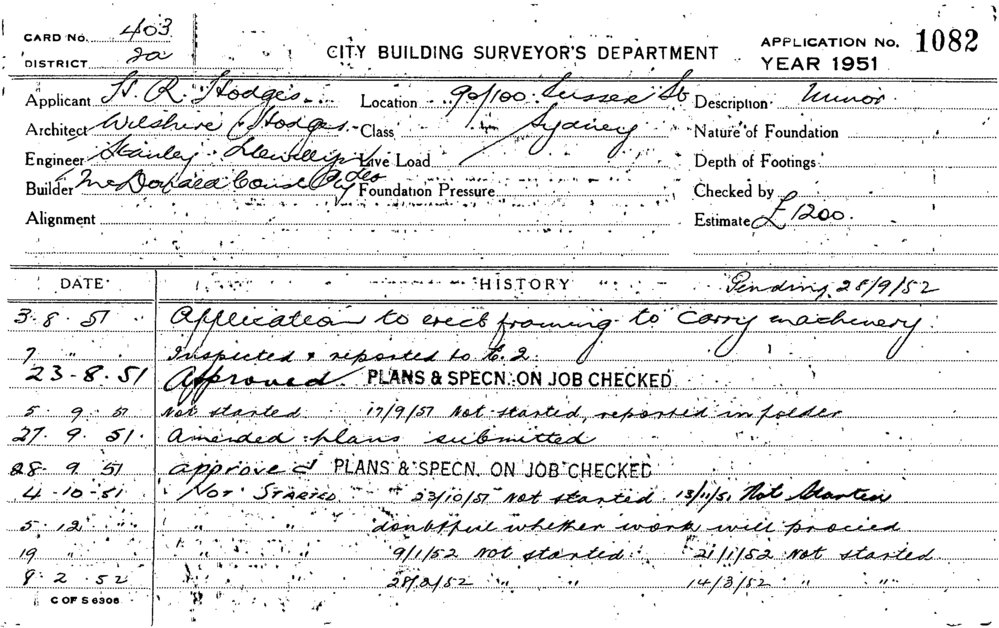 CARD No. 403
DISTRICT 2a
CITY BUILDING SURVEYOR'S DEPARTMENT
APPLICATION No. 1082
YEAR 1951
Applicant H. R. Hodges Location 90/100 Sussex St Description Minor
Architect Wilshire & Hodges Class Sydney Nature of Foundation
Engineer Stanley Llewellyn Live Load Depth of Footings
Builder McDonald Const Pty Foundation Pressure Checked by
Alignment Estimate £1200.
DATE HISTORY Pending 28/9/52
3.8.51 Application to erect framing to carry machinery.
7 " Inspected & reported to
23-8-51 Approved. PLANS & SPECN. ON JOB CHECKED
5.9.51 Not started 17/9/51 Not started, reported in folder
27.9.51. Amended plans submitted
28.9.51 approved PLANS & SPECN. ON JOB CHECKED
4-10-51 NOT STARTED " 23/10/51 Not started 13/11/51 Not Started
5.12 " " " doubtful whether work will proceed
19 " " " 9/1/52 Not started 21/1/52 Not started
8.2.52 " " 28/2/52 " " 14/3/52 " "
C OF S 6306